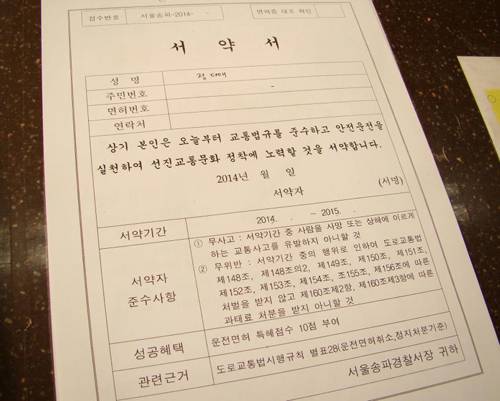 접수번호 서울송파-2014- 면허증 대조 확인
서 약 서
성 명
주민번호 -
면허번호
연락처
상기 본인은 오늘부터 교통법규를 준수하고 안전운전을
실천하여 선진교통문화 정착에 노력할 것을 서약합니다.
2014년 월 일
서약자 (서명)
서약기간 2014. . ~ 2015. .
서약자 준수사항
① 무사고 : 서약기간 중 사람을 사망 또는 상해에 이르게
하는 교통사고를 유발하지 아니할 것
② 무위반 : 서약기간 중의 행위로 인하여 도로교통법
제148조, 제148조의2, 제149조, 제150조, 제151조,
제152조, 제153조, 제154조, 조155조, 제156조에 따른
처벌을 받지 않고 제160조제2항, 제160조제3항에 따른
과태료 처분을 받지 아니할 것
성공혜택 운전면허 특혜점수 10점 부여
관련근거 도로교통법시행규칙 별표28(운전면허취소,정지처분기준)
서울송파경찰서장 귀하